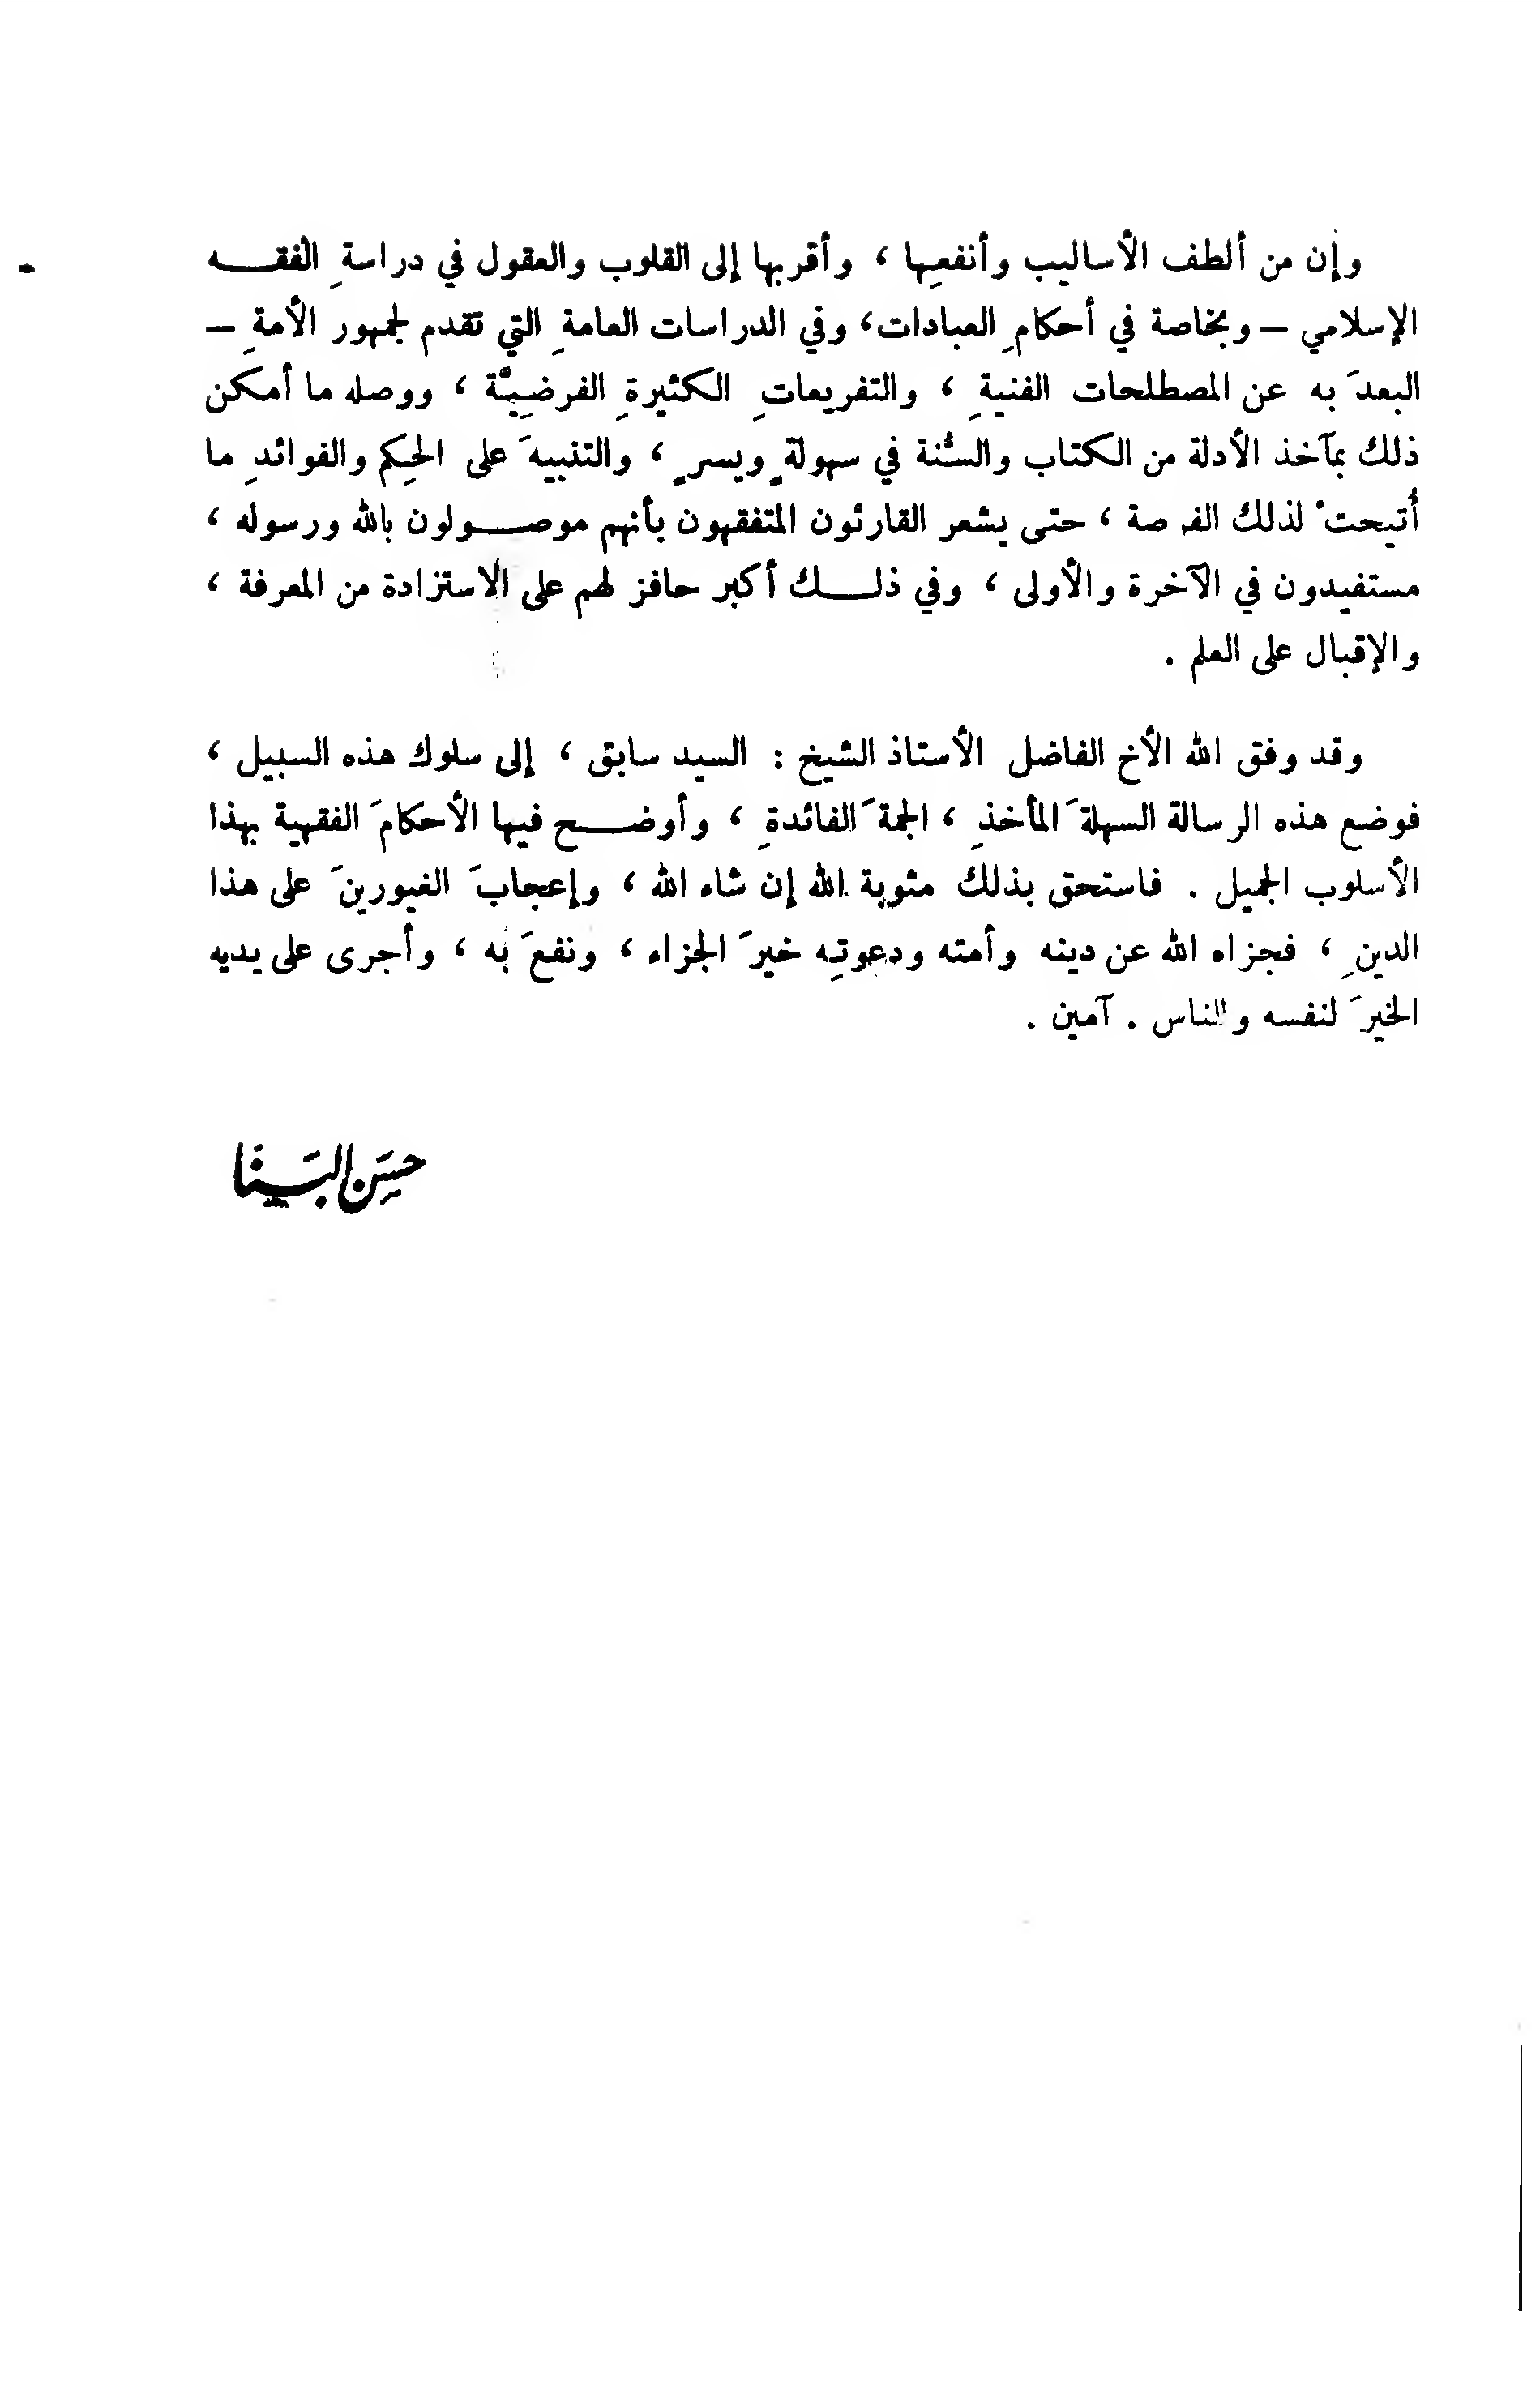 وإن من ألطف الأساليب وأنفعِها ، وأقربها إلى القلوب والعقول في دراسةِ الفقه
الإسلامي – وبخاصة في أحكامِ العبادات، وفي الدراسات العامةِ التي تقدم لجمهور الأمةِ –
البعدَ به عن المصطلحات الفنيةِ ، والتفريعاتِ الكثيرةِ الفرضِيَّة ، ووصله ما أمكن
ذلك بمآخذ الأدلة من الكتاب والسُّنة في سهولةٍ ويسرٍ ، والتنبيهَ على الحِكم والفوائدِ ما
أُتيحتْ لذلك الفرصة ، حتى يشعر القارئون المتفقهون بأنهم موصولون بالله ورسوله ،
مستفيدون في الآخرة والأولى ، وفي ذلك أكبر حافز لهم على الاستزادة من المعرفة ،
والإقبال على العلم .
وقد وفق الله الأخ الفاضل الأستاذ الشيخ : السيد سابق ، إلى سلوك هذه السبيل ،
فوضع هذه الرسالة السهلةَ المأخذِ ، الجمةَ الفائدةِ ، وأوضح فيها الأحكامَ الفقهية بهذا
الأسلوب الجميل . فاستحق بذلك مثوبة الله إن شاء الله ، وإعجابَ الغيورينَ على هذا
الدينِ ، فجزاه الله عن دينه وأمته ودعوتِه خيرَ الجزاء ، ونفعَ به ، وأجرى على يديه
الخيرَ لنفسه والناس . آمين .
حسَن البَنَّا